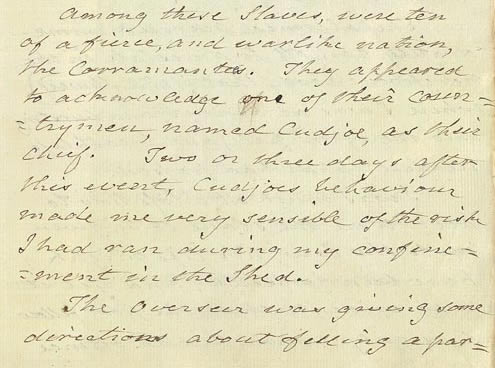 Among these Slaves, were ten
of a fierce, and warlike nation,
the Corramantes. They appeared
to acknowledge one of their coun-
=trymen, named Cudjoe, as their
Chief. Two or three days after
this event, Cudjoes behaviour
made me very sensible of the risk
I had ran during my confine-
=ment in the Shed.
The Overseer was giving some
directions about felling a par=